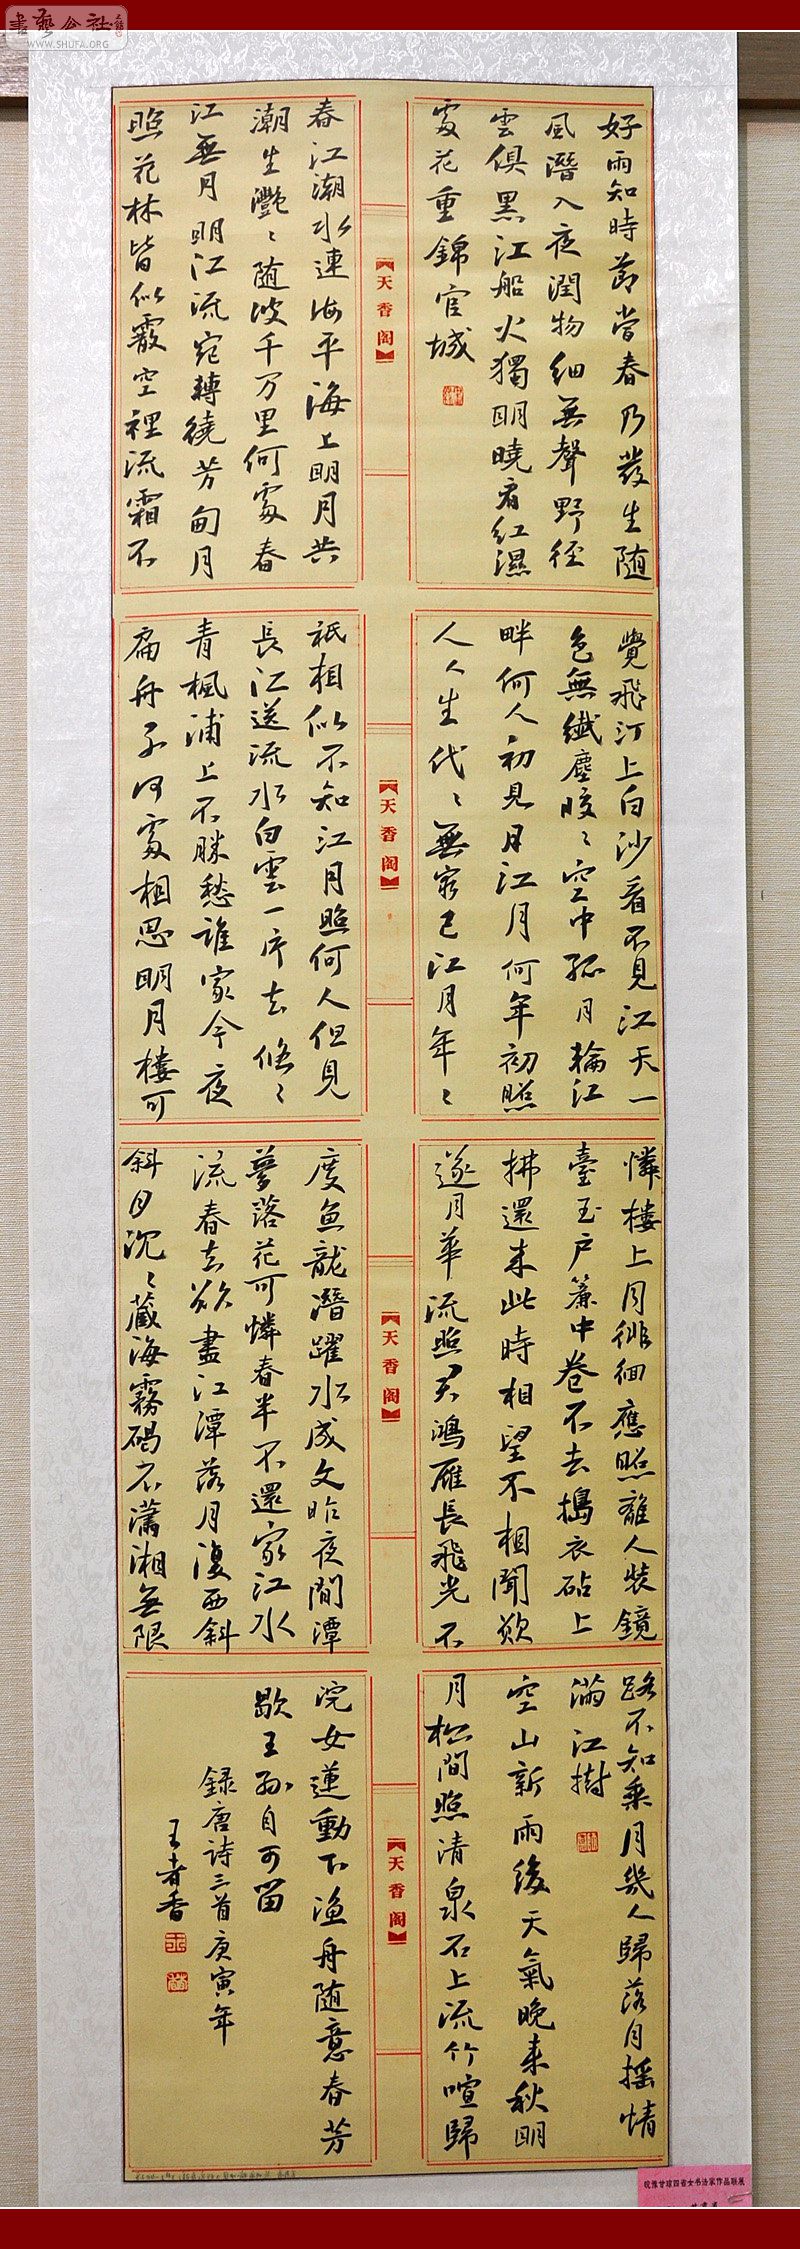 書藝公社
WWW.SHUFA.ORG
好雨知時節當春乃發生随
風潛入夜潤物細無聲野徑
雲俱黑江船火獨明曉看紅濕
處花重錦官城
天香阁
春江潮水連海平海上明月共
潮生灩〻随波千万里何處春
江無月明江流宛轉繞芳甸月
照花林皆似霰空裡流霜不
覺飛汀上白沙看不見江天一
色無纖塵皎〻空中孤月輪江
畔何人初見月江月何年初照
人人生代〻無窮已江月年〻
天香阁
祇相似不知江月照何人但見
長江送流水白雲一片去悠〻
青楓浦上不勝愁誰家今夜
扁舟子何處相思明月樓可
憐樓上月徘徊應照離人装鏡
臺玉户簾中卷不去搗衣砧上
拂還来此時相望不相聞欲
逐月華流照君鴻雁長飛光不
天香阁
度魚龍潛躍水成文昨夜閒潭
夢落花可憐春半不還家江水
流春去欲盡江潭落月復西斜
斜月沉〻藏海霧碣石瀟湘無限
路不知乘月幾人歸落月摇情
滿江樹
空山新雨後天氣晚来秋明
月松間照清泉石上流竹喧歸
天香阁
浣女蓮動下漁舟随意春芳
歇王孫自可留
録唐詩三首庚寅年
王者香
皖豫甘琼四省女书法家作品联展